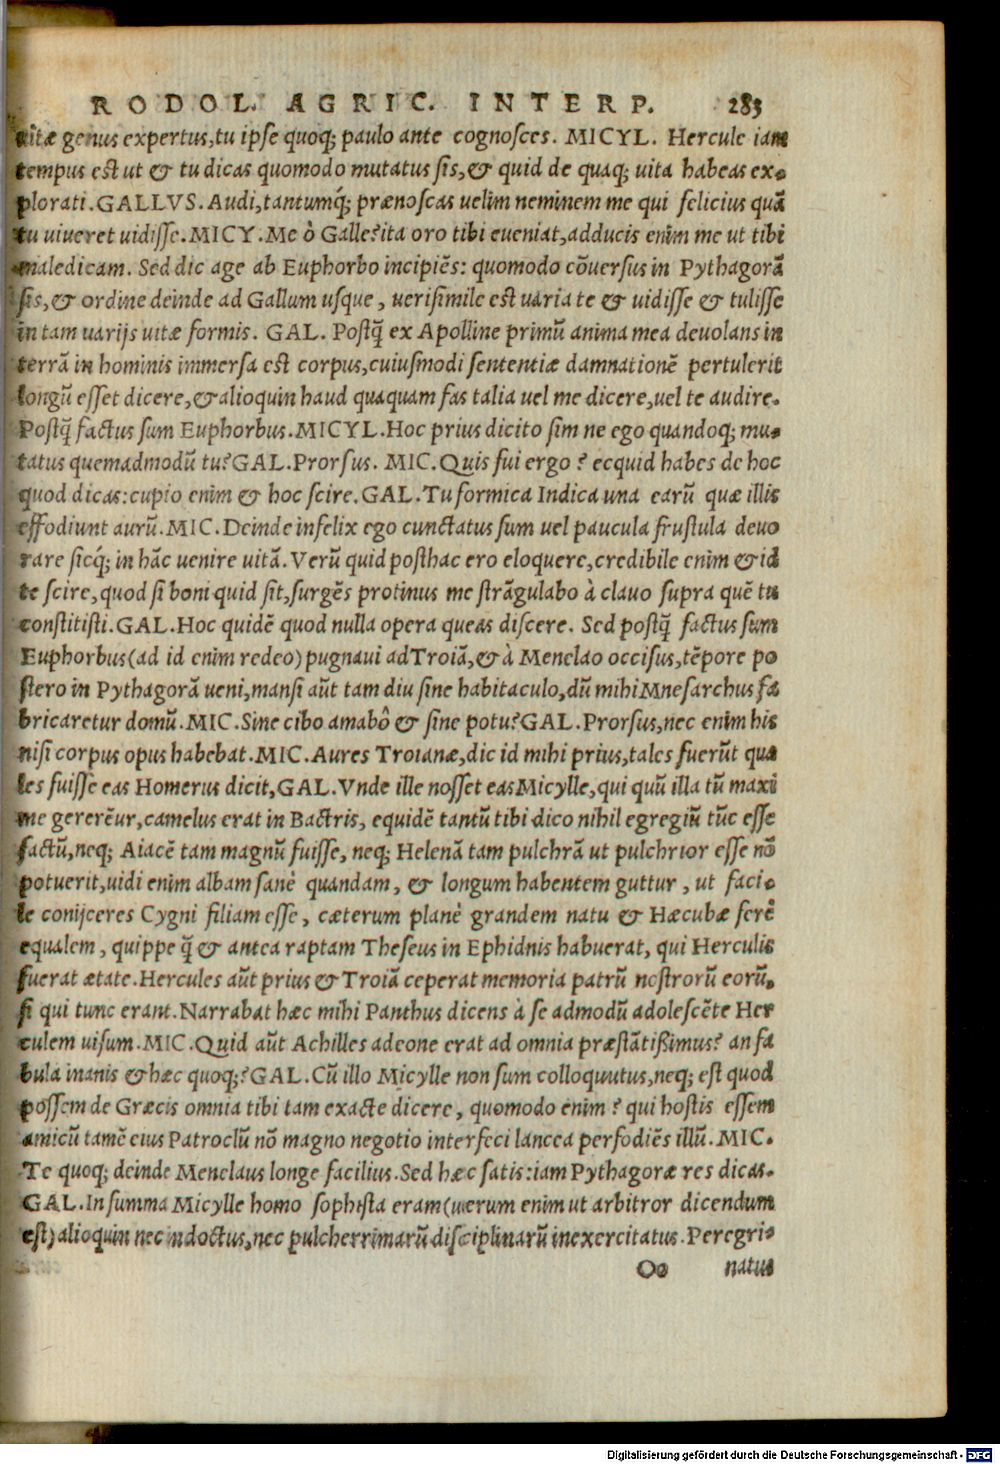 RODOL. AGRIC. INTERP. 285
uitæ genus expertus, tu ipse quoq; paulo ante cognosces. MICYL. Hercule iam
tempus est ut & tu dicas quomodo mutatus sis, & quid de quaq; uita habeas ex-
plorati. GALLVS. Audi, tantumq́; prænoscas uelim neminem me qui felicius quā
tu uiueret uidisse. MICY. Me ô Galle? ita oro tibi eueniat, adducis enim me ut tibi
maledicam. Sed dic age ab Euphorbo incipiēs: quomodo cōuersus in Pythagorā
sis, & ordine deinde ad Gallum usque, uerisimile est uaria te & uidisse & tulisse
in tam uarijs uitæ formis. GAL. Postq̃ ex Apolline primū anima mea deuolans in
terrā in hominis immersa est corpus, cuiusmodi sententiæ damnationē pertulerit
longū esset dicere, & alioquin haud quaquam fas talia uel me dicere, uel te audire.
Postq̃ factus sum Euphorbus. MICYL. Hoc prius dicito sim ne ego quandoq; mu-
tatus quemadmodū tu? GAL. Prorsus. MIC. Quis fui ergo? ecquid habes de hoc
quod dicas: cupio enim & hoc scire. GAL. Tu formica Indica una earū quæ illis
effodiunt aurū. MIC. Deinde infelix ego cunctatus sum uel paucula frustula deuo
rare sicq́; in hāc uenire uitā. Verū quid posthac ero eloquere, credibile enim & id
te scire, quod si boni quid sit, surgēs protinus me strāgulabo à clauo supra quē tu
constitisti. GAL. Hoc quidē quod nulla opera queas discere. Sed postq̃ factus sum
Euphorbus (ad id enim redeo) pugnaui ad Troiā, & à Menelao occisus, tēpore po
stero in Pythagorā ueni, mansi aūt tam diu sine habitaculo, dū mihi Mnesarchus fa
bricaretur domū. MIC. Sine cibo amabô & sine potu? GAL. Prorsus, nec enim his
nisi corpus opus habebat. MIC. Aures Troianæ, dic id mihi prius, tales fuerūt qua
les fuisse eas Homerus dicit, GAL. Vnde ille nosset eas Micylle, qui quū illa tū maxi
me gererēur, camelus erat in Bactris, equidē tantū tibi dico nihil egregiū tūc esse
factū, neq; Aiacē tam magnū fuisse, neq; Helenā tam pulchrā ut pulchrior esse nō
potuerit, uidi enim albam sanè quandam, & longum habentem guttur, ut faci-
le conijceres Cygni filiam esse, cæterum planè grandem natu & Hæcubæ ferè
equalem, quippe q̃ & antea raptam Theseus in Ephidnis habuerat, qui Herculis
fuerat ætate. Hercules aūt prius & Troiā ceperat memoria patrū nostrorū eorū,
si qui tunc erant. Narrabat hæc mihi Panthus dicens à se admodū adolescēte Her
culem uisum. MIC. Quid aūt Achilles adeone erat ad omnia præstātißimus? an fa
bula inanis & hæc quoq;? GAL. Cū illo Micylle non sum colloquutus, neq; est quod
possem de Græcis omnia tibi tam exacte dicere, quomodo enim? qui hostis essem
amicū tamē eius Patroclū nō magno negotio interfeci lancea perfodiēs illū. MIC.
Te quoq; deinde Menelaus longe facilius. Sed hæc satis: iam Pythagoræ res dicas.
GAL. In summa Micylle homo sophista eram (uerum enim ut arbitror dicendum
est) alioquin nec indoctus, nec pulcherrimarū disciplinarū inexercitatus. Peregri-
Oo natus
Digitalisierung gefördert durch die Deutsche Forschungsgemeinschaft - DFG